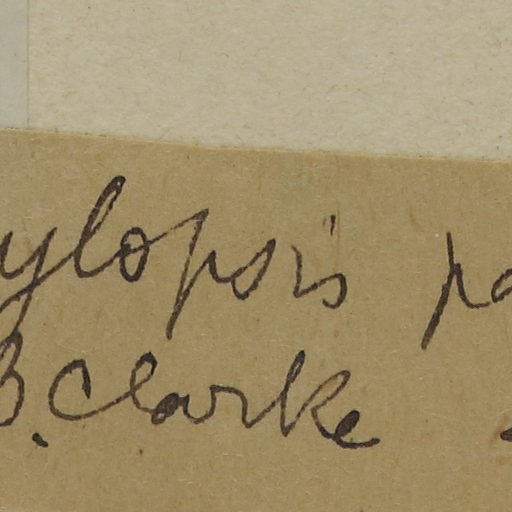 ylopsis pa
B. Clarke